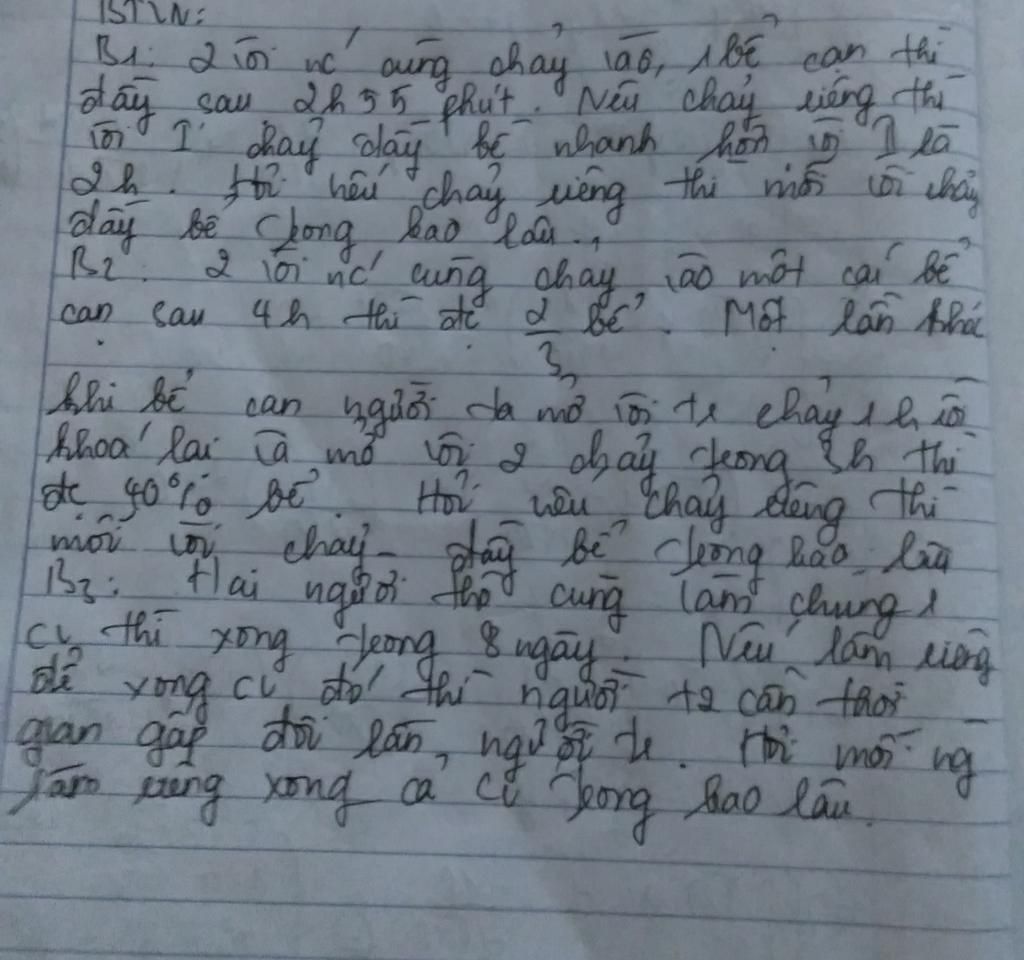 BTVN:
B1: 2 vòi nc' cùng chảy vào 1 bể cạn thì
đầy sau 2h55 phút. Nếu chảy riêng thì
vòi I chảy đầy bể nhanh hơn vòi II là
2h. Hỏi nếu chảy riêng thì mỗi vòi chảy
đầy bể trong bao lâu.
B2: 2 vòi nc' cùng chảy vào một cái bể
cạn sau 4h thì đc 2/3 bể. Một lần khác
khi bể cạn người ta mở vòi t1 chảy 1h rồi
khoá lại và mở vòi 2 chảy trong 3h thì
đc 40% bể. Hỏi nếu chảy riêng thì
mỗi vòi chảy đầy bể trong bao lâu
B3: Hai người thợ cùng làm chung 1
cv thì xong trong 8 ngày. Nếu làm riêng
để xong cv đó thì người t2 cần thời
gian gấp đôi lần người t1. Hỏi mỗi ng
làm riêng xong cả cv trong bao lâu.